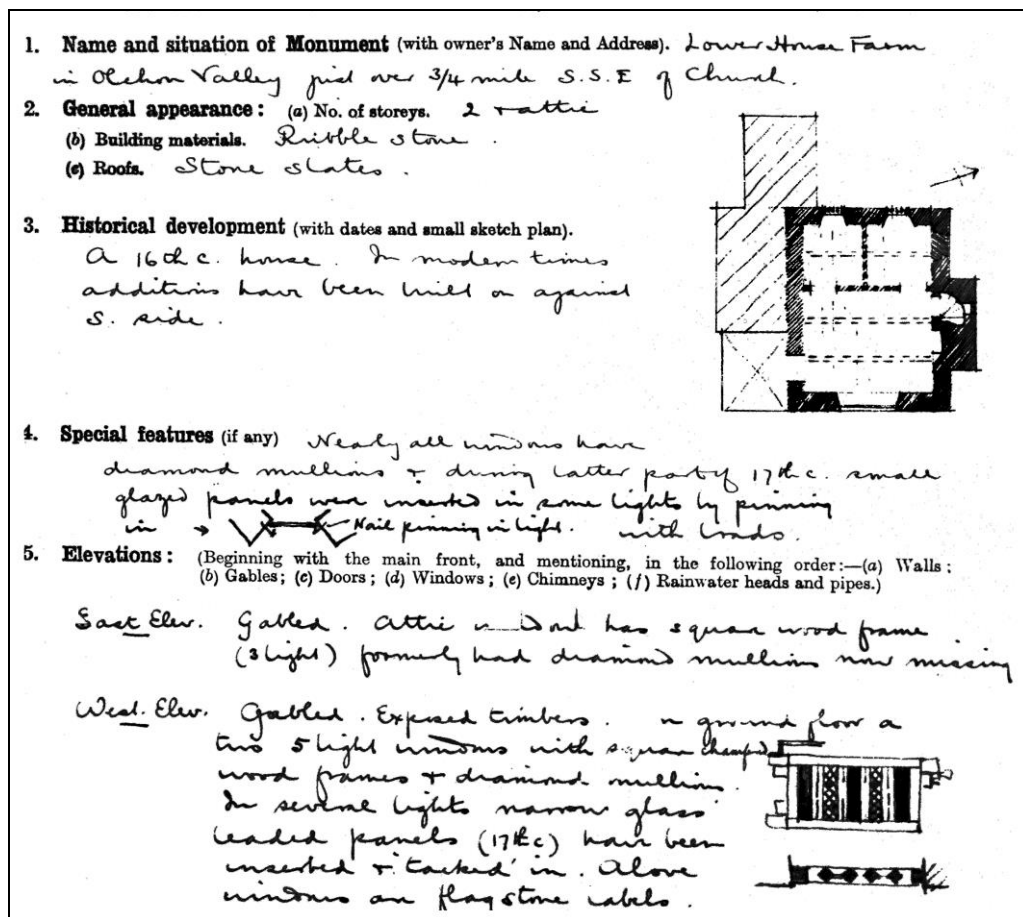 1. Name and situation of Monument (with owner's Name and Address). Lower House Farm
in Olchon Valley just over 3/4 mile S.S.E of Church.
2. General appearance: (a) No. of storeys. 2 + attic
(b) Building materials. Rubble stone.
(c) Roofs. Stone slates.
3. Historical development (with dates and small sketch plan).
A 16th c. house. In modern times
additions have been built on against
S. side.
4. Special features (if any) Nearly all windows have
diamond mullions + during latter part of 17th c. small
glazed panels were inserted in some lights by pinning
in → Nail pinning in light. with
5. Elevations: (Beginning with the main front, and mentioning, in the following order:—(a) Walls;
(b) Gables; (c) Doors; (d) Windows; (e) Chimneys; (f) Rainwater heads and pipes.)
East Elev. Gabled. Attic window has square wood frame
(3 light) formerly had diamond mullions now missing
West. Elev. Gabled. Exposed timbers. ground floor
two 5 light windows with square
wood frames + diamond mullions.
In several lights narrow glass
leaded panels (17th c) have been
inserted + 'tacked' in. Above
windows are flagstone labels.